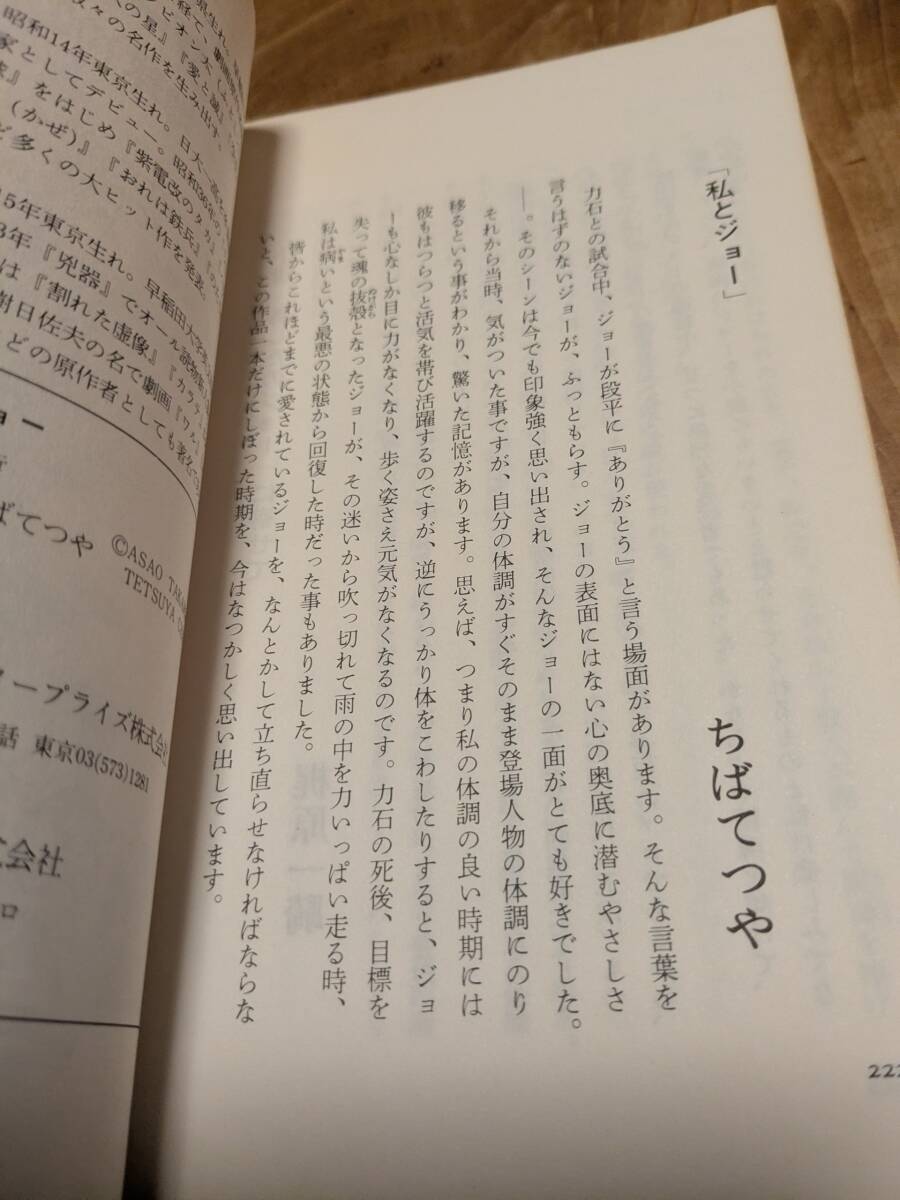 「私とジョー」
ちばてつや
力石との試合中、ジョーが段平に『ありがとう』と言う場面があります。そんな言葉を
言うはずのないジョーが、ふっともらす。ジョーの表面にはない心の奥底に潜むやさしさ
――。そのシーンは今でも印象強く思い出され、そんなジョーの一面がとても好きでした。
それから当時、気がついた事ですが、自分の体調がすぐそのまま登場人物の体調にのり
移るという事がわかり、驚いた記憶があります。思えば、つまり私の体調の良い時期には
彼もはつらつと活気を帯び活躍するのですが、逆にうっかり体をこわしたりすると、ジョ
ーも心なしか目に力がなくなり、歩く姿さえ元気がなくなるのです。力石の死後、目標を
失って魂の抜殻となったジョーが、その迷いから吹っ切れて雨の中を力いっぱい走る時、
私は病いという最悪の状態から回復した時だった事もありました。
皆からこれほどまでに愛されているジョーを、なんとかして立ち直らせなければならな
いと、この作品一本だけにしぼった時期を、今はなつかしく思い出しています。
昭和14年東京生れ。日大一高
家としてデビュー。昭和36年
』をはじめ『紫電改のタカ』
(かぜ)』『おれは鉄兵』
ど多くの大ヒット作を発表。
5年東京生れ。早稲田大学
年『兇器』でオール読物
は『割れた虚像』『カラテ
樹日佐夫の名で劇画『ワル』
どの原作者としても著名で
ョー
ばてつや
©ASAO TAKA
TETSUYA C
タープライズ株式会社
話 東京03(573)1281
式会社